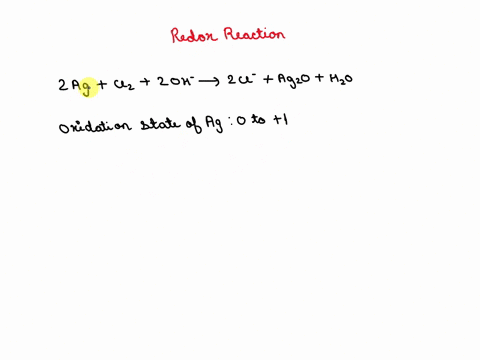 Redox Reaction
2Ag + Cl₂ + 2OH⁻ → 2Cl⁻ + Ag₂O + H₂O
Oxidation state of Ag : 0 to +1